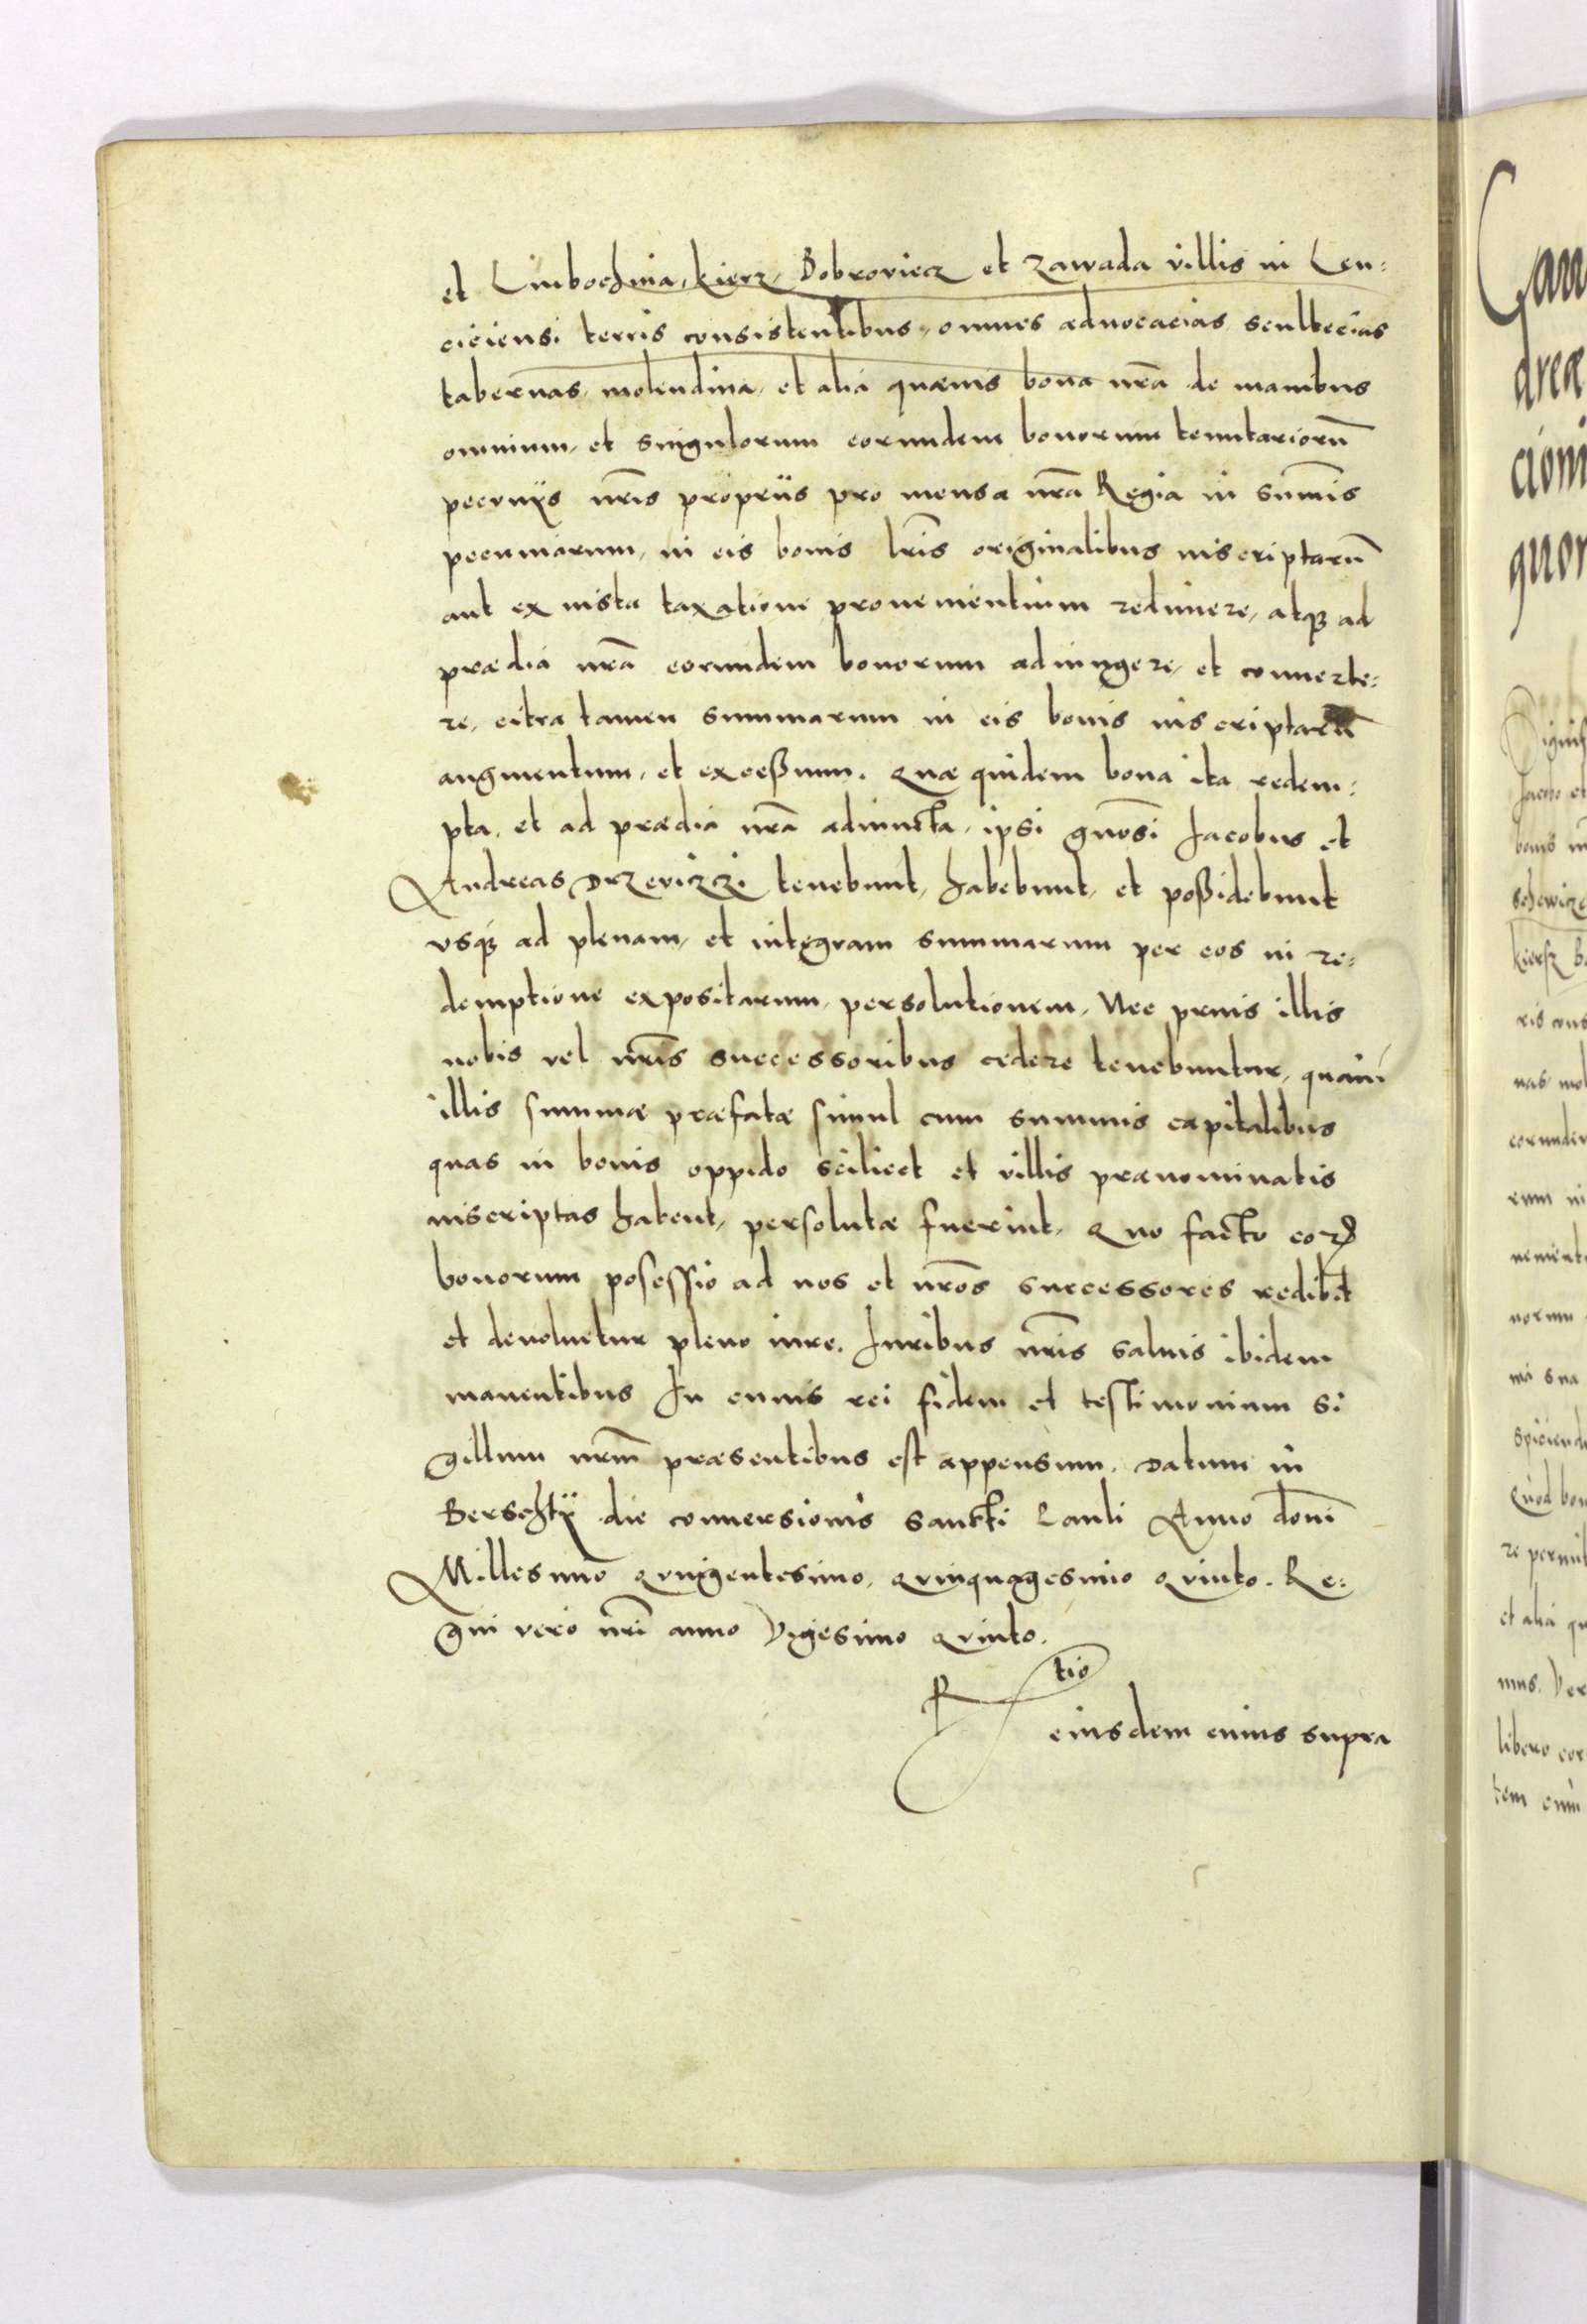 et Lubochnia, kierz, Dobroviecz et Zawada villis in Len:
ciciensi terris consistentibus, omnes advocacias scultecias
tabernas, molendina, et alia quævis bona nr̃a de manibus
omnium, et singulorum eorundem bonorum tenutariorũ
pecunijs nr̃is proprijs pro mensa nr̃a Regia in sum̃is
pecuniarum, in eis bonis lr̃is originalibus inscriptarũ
aut ex iusta taxatione provenientium redimere, atq3 ad
prædia nr̃a eorundem bonorum adiungere, et converte:
re, citra tamen summarum in eis bonis inscriptarũ
augmentum, et exceßum. Quæ quidem bona ita redem:
pta, et ad prædia nr̃a adiuncta, ipsi gñosi Jacobus et
Andreas Drzeviczci tenebunt, habebunt, et poßidebunt
vsq3 ad plenam, et integram summarum per eos in re:
demptione expositarum, persolutionem, Nec prius illis
nobis vel nr̃is successoribus cedere tenebuntur, quam
illis summæ præfatæ simul cum summis capitalibus
quas in bonis oppido scilicet et villis prænominatis
inscriptas habent, persolutæ fuerint, Quo facto eorꝫ
bonorum posessio ad nos et nr̃os successores redibit
et devoluetur pleno iure. Juribus nr̃is salvis ibidem
manentibus In cuius rei fidem et testimonium si
gillum nr̃m præsentibus est appensum. Datum in
Berschty die conversionis sancti Pauli Anno domĩ
Millesimo Quingentesimo, Quinquagesimo Quinto. Re:
gni vero nr̃i anno Vigesimo Quinto.
R tio
eiusdem cuius supra
Jacobo et